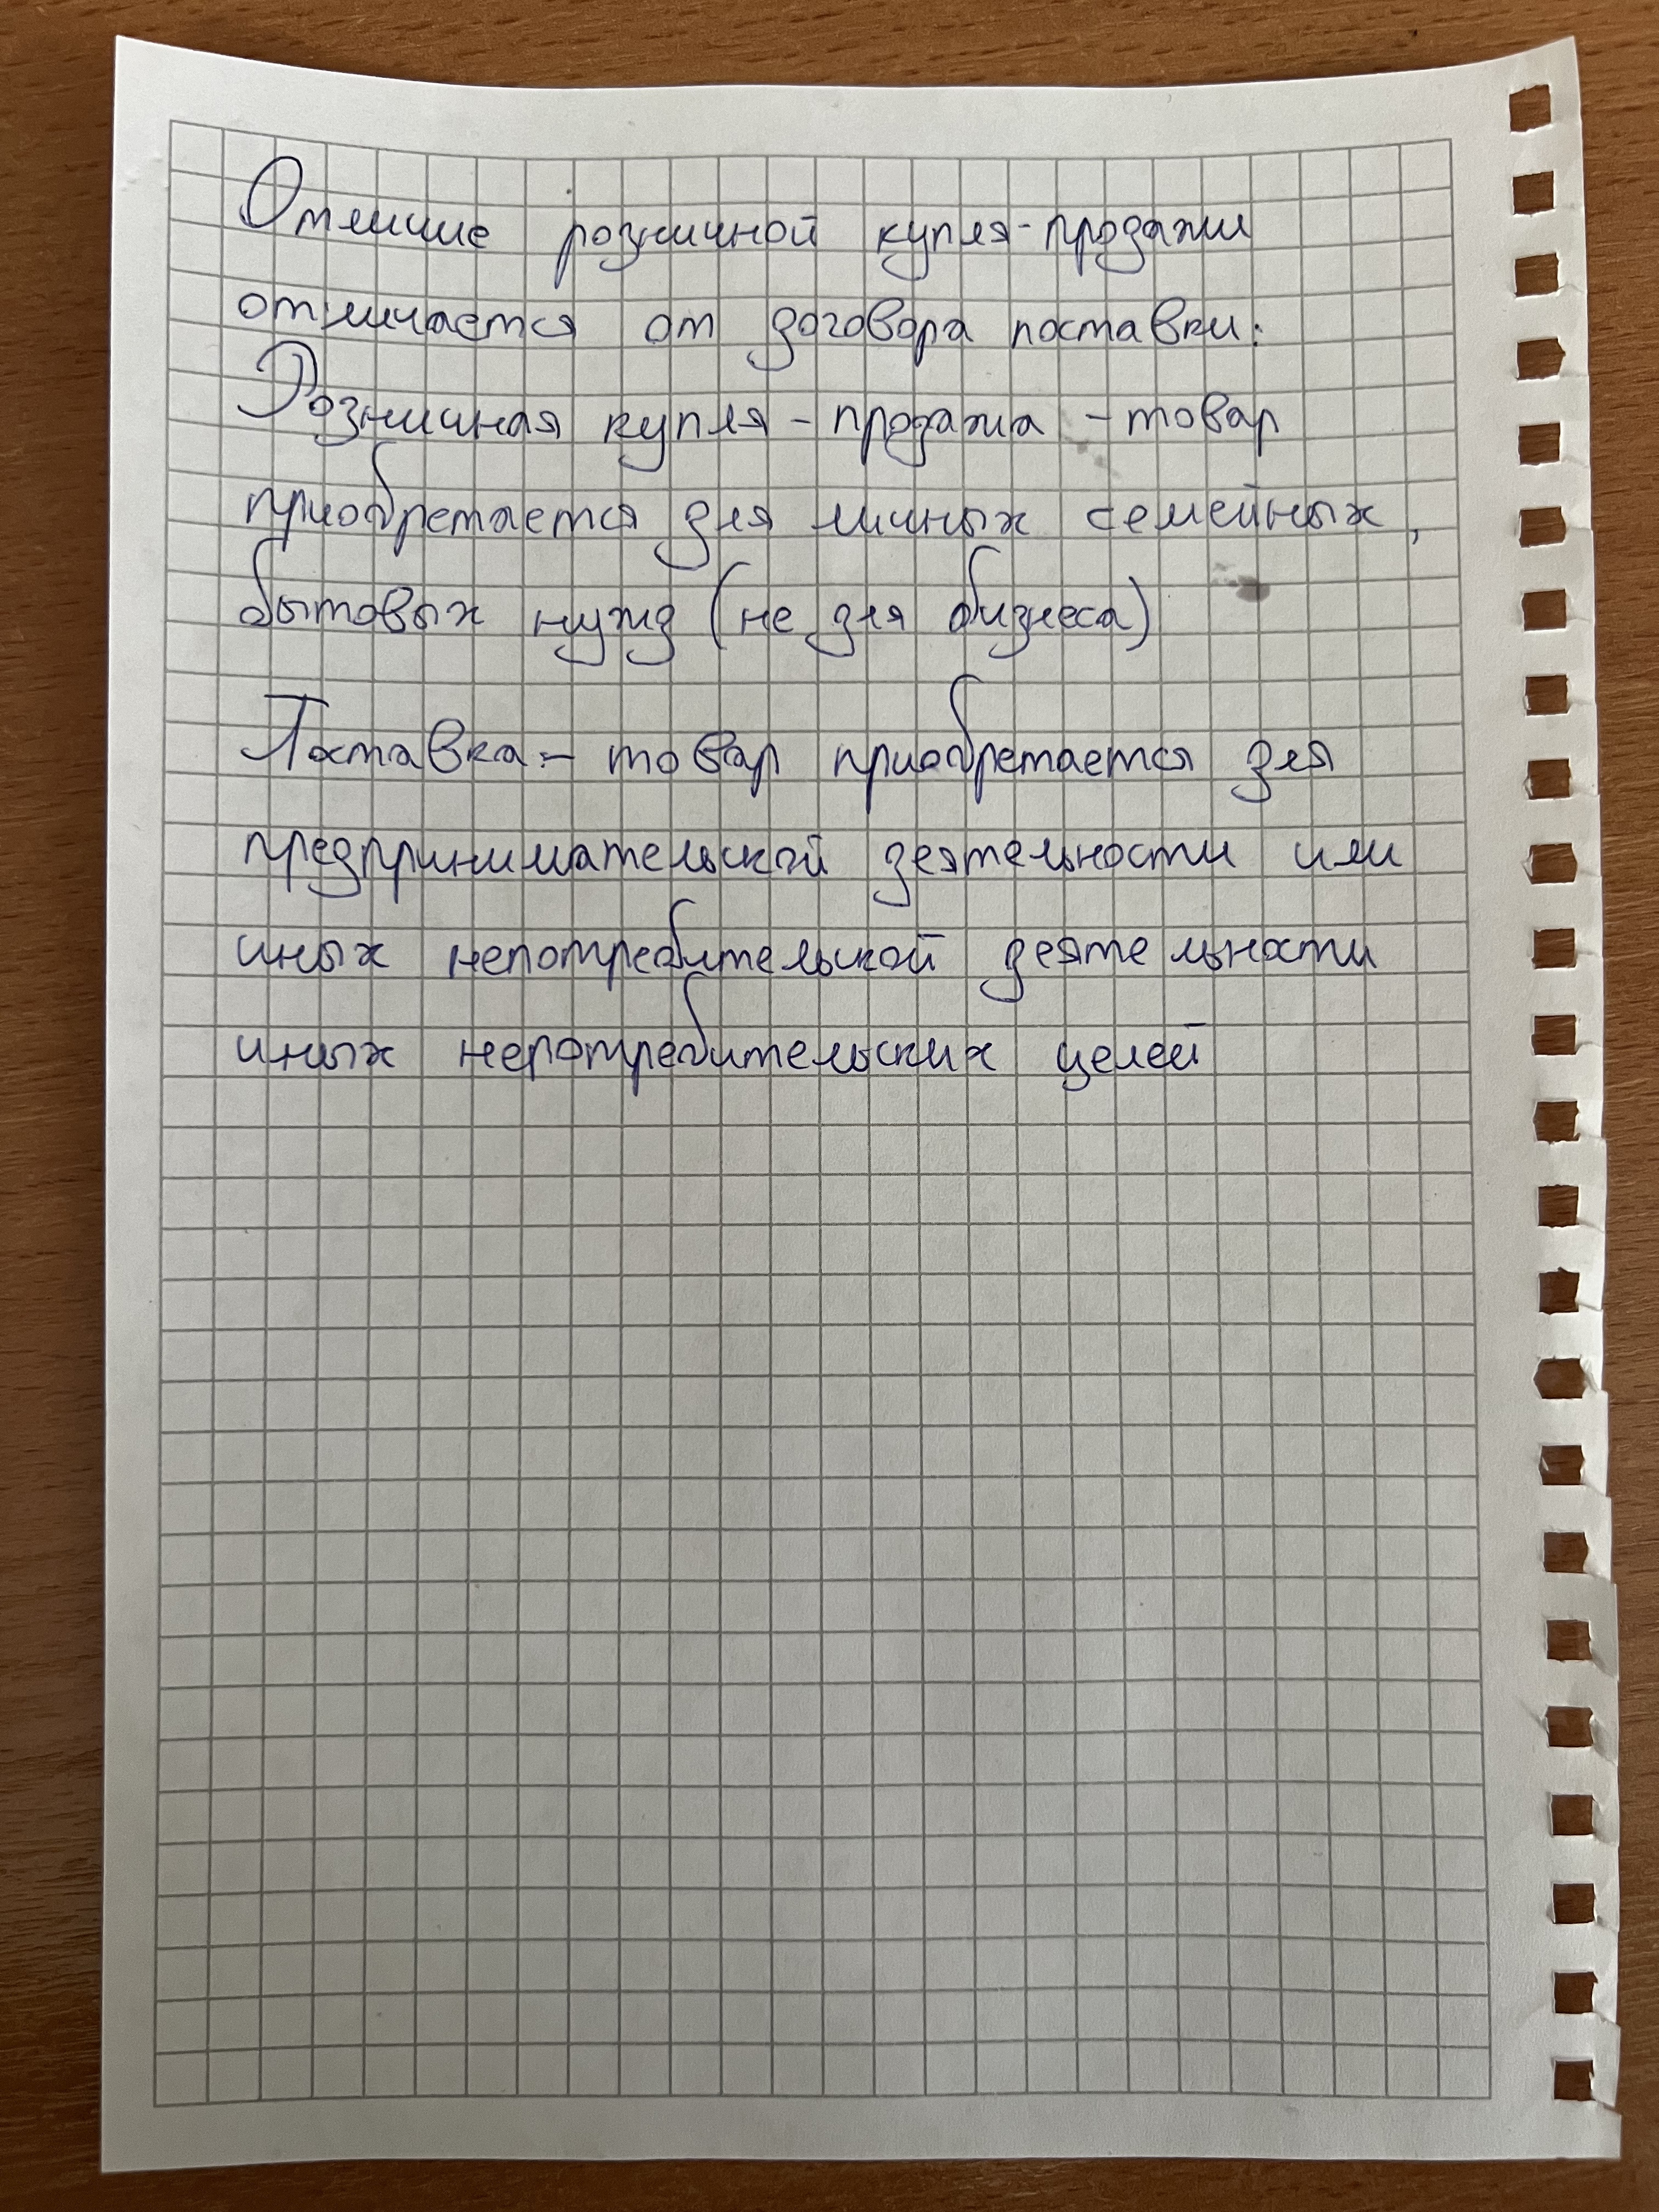 Отличие розничной купля-продажи
отличается от договора поставки:
Розничная купля-продажа - товар
приобретается для личных семейных,
бытовых нужд (не для бизнеса)
Поставка:- товар приобретается для
предпринимательской деятельности или
иных непотребительской деятельности
иных непотребительских целей